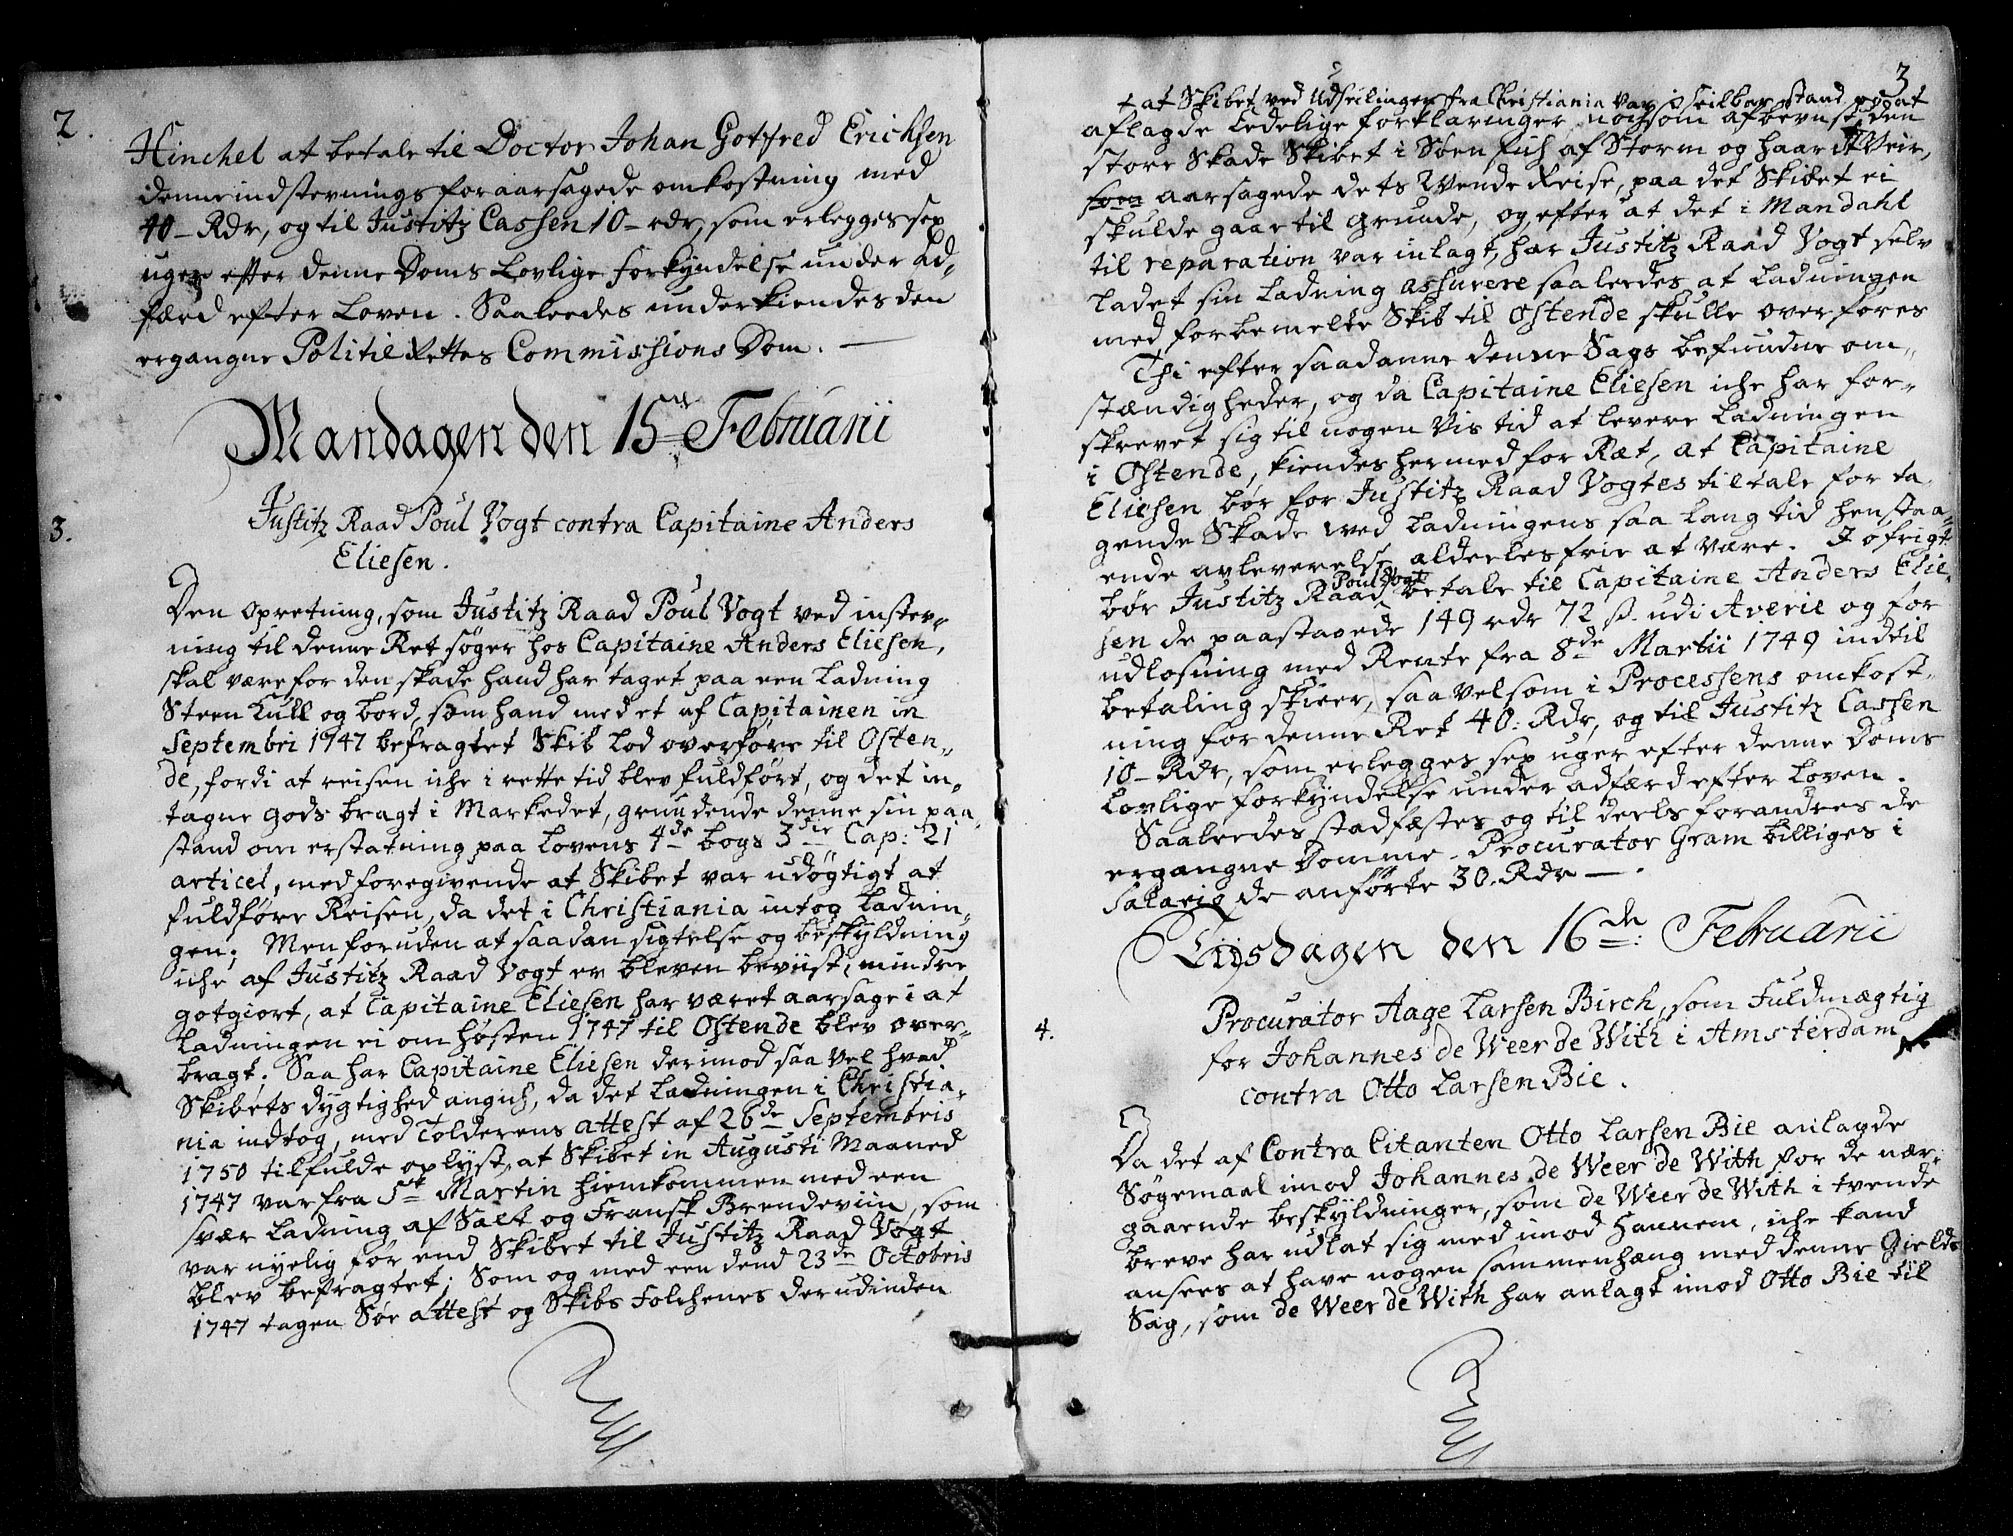 2.
Hinchel at betale til Doctor Johan Gotfred Erichsen
denne indstevnings foraarsagede omkostning med
40 – Rdr, og til Justitz Cassen 10 – rdr, som erlegges sex
uger efter denne Doms Lovlige forkyndelse under ad„
færd efter Loven. Saaleedes underkiendes den
ergangne Politie Rettes Commissions Dom. —
Mandagen den 15de Februarii
3.
Justitz Raad Poul Vogt contra Capitaine Anders
Eliesen.
Den Opretning, som Justitz Raad Poul Vogt ved instev„
ning til denne Ret søger hos Capitaine Anders Eliesen,
skal være for den skade hand har taget paa een Ladning
Steen Kull og bord, som hand med et af Capitainen in
Septembri 1747 befragtet Skib lod overføre til Osten„
de, fordi at reisen iche i rette tid blev fuldført, og det in„
tagne gods bragt i Markedet, grundende denne sin paa„
stand om erstatning paa Lovens 4de bogs 3die Cap: 21
articel, med foregivende at Skibet var udøgtigt at
fuldføre Reisen, da det i Christiania intog Ladnin„
gen; Men foruden at saadan sigtelse og beskyldning
iche af Justitz Raad Vogt er bleven beviist, mindre
gotgiort, at Capitaine Eliesen har været aarsage i at
Ladningen ei om høsten 1747 til Ostende blev over„
bragt. Saa har Capitaine Eliesen derimod saa vel hvad
Skibets dygtighed angich, da det Ladningen i Christia„
nia indtog, med Tolderens attest af 26de Septembris
1750 tilfulde oplyst, at Skibet in Augusti Maaned
1747 var fra St Martin hiemkommen med een
svær Ladning af Salt og Fransk Brendeviin, som
var nyelig før end Skibet til Justitz Raad Vogt
blev befragtet; Som og med een dend 23de Octobris
1747 tagen Søe attest og Skibs Folchenes derudinden
3
† at Skibet ved Udseilingen fra Christiania var i seilbar stand og at
aflagde Eedelige forklaringer nochsom afbeviise, den
store Skade Skibet i Søen fich af Storm og haardt Veir,
aarsagede dets Vende Reise, paa det Skibet ei
skulde gaae til grunde, og efter at det i Mandahl
til reparation var inlagt, har Justitz Raad Vogt selv
ladet sin Ladning assurere saaleedes at Ladningen
med forbemelte Skib til Ostende skulle overføres
Thi efter saadanne denne Sags befundne om„
stændigheder, og da Capitaine Eliesen iche har for„
skrevet sig til nogen vis tid at levere Ladningen
i Ostende, kiendes hermed for Ræt, at Capitaine
Eliesen bør for Justitz Raad Vogtes tiltale for ta„
gende Skade ved Ladningens saa lang tid henstaa„
ende avleverelse alderles frie at være. I øfrigt
bør Justitz Raad Poul Vogt betale til Capitaine Anders Elie„
sen de paastaaede 149 rdr 72 s. udi Averie og for
udlosning med Rente fra 8de Martii 1749 indtil
betaling skieer, saavelsom i Processens omkost„
ning for denne Ret 40: Rdr, og til Justitz Cassen
10 – Rdr, som erlegges sex uger efter denne Doms
Lovlige forkyndelse under adfærd efter Loven.
Saaleedes stadfæstes og til deels forandres de
ergangne Domme. Procurator Gram billiges i
Salario de anførte 30. Rdr — .
Tiisdagen den 16de: Februarii
4.
Procurator Aage Larsen Birch, som Fuldmægtig
for Johannes de Weer de With i Amsterdam
contra Otto Larsen Bie.
Da det af Contra Citanten Otto Larsen Bie anlagde
Søgemaal imod Johannes de Weer de With for de nær„
gaaende beskyldninger, som de Weer de With i tvende
breve har udlat sig med imod Hannem, iche kand
ansees at have nogen sammenhæng med denne Gields
Sag, som de Weer de With har anlagt imod Otto Bie til